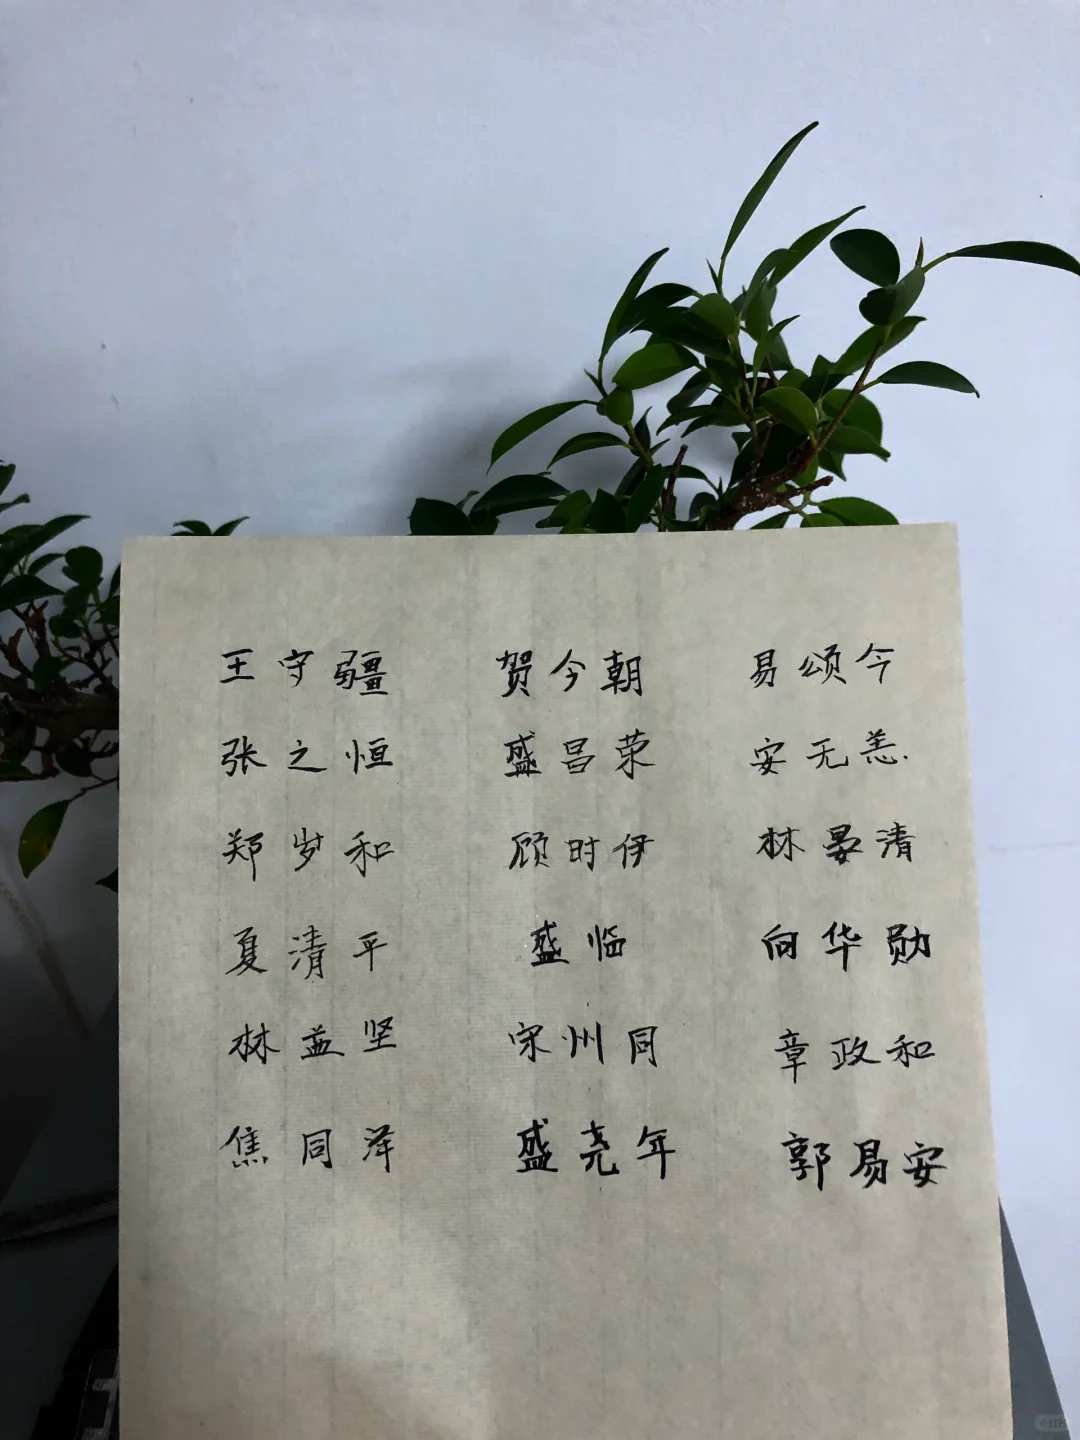 王守疆 贺今朝 易颂今
张之恒 盛昌荣 安无恙.
郑岁和 顾时伊 林晏清
夏清平 盛临 向华勋
林益坚 宋州同 章政和
焦同泽 盛尧年 郭易安
小红书